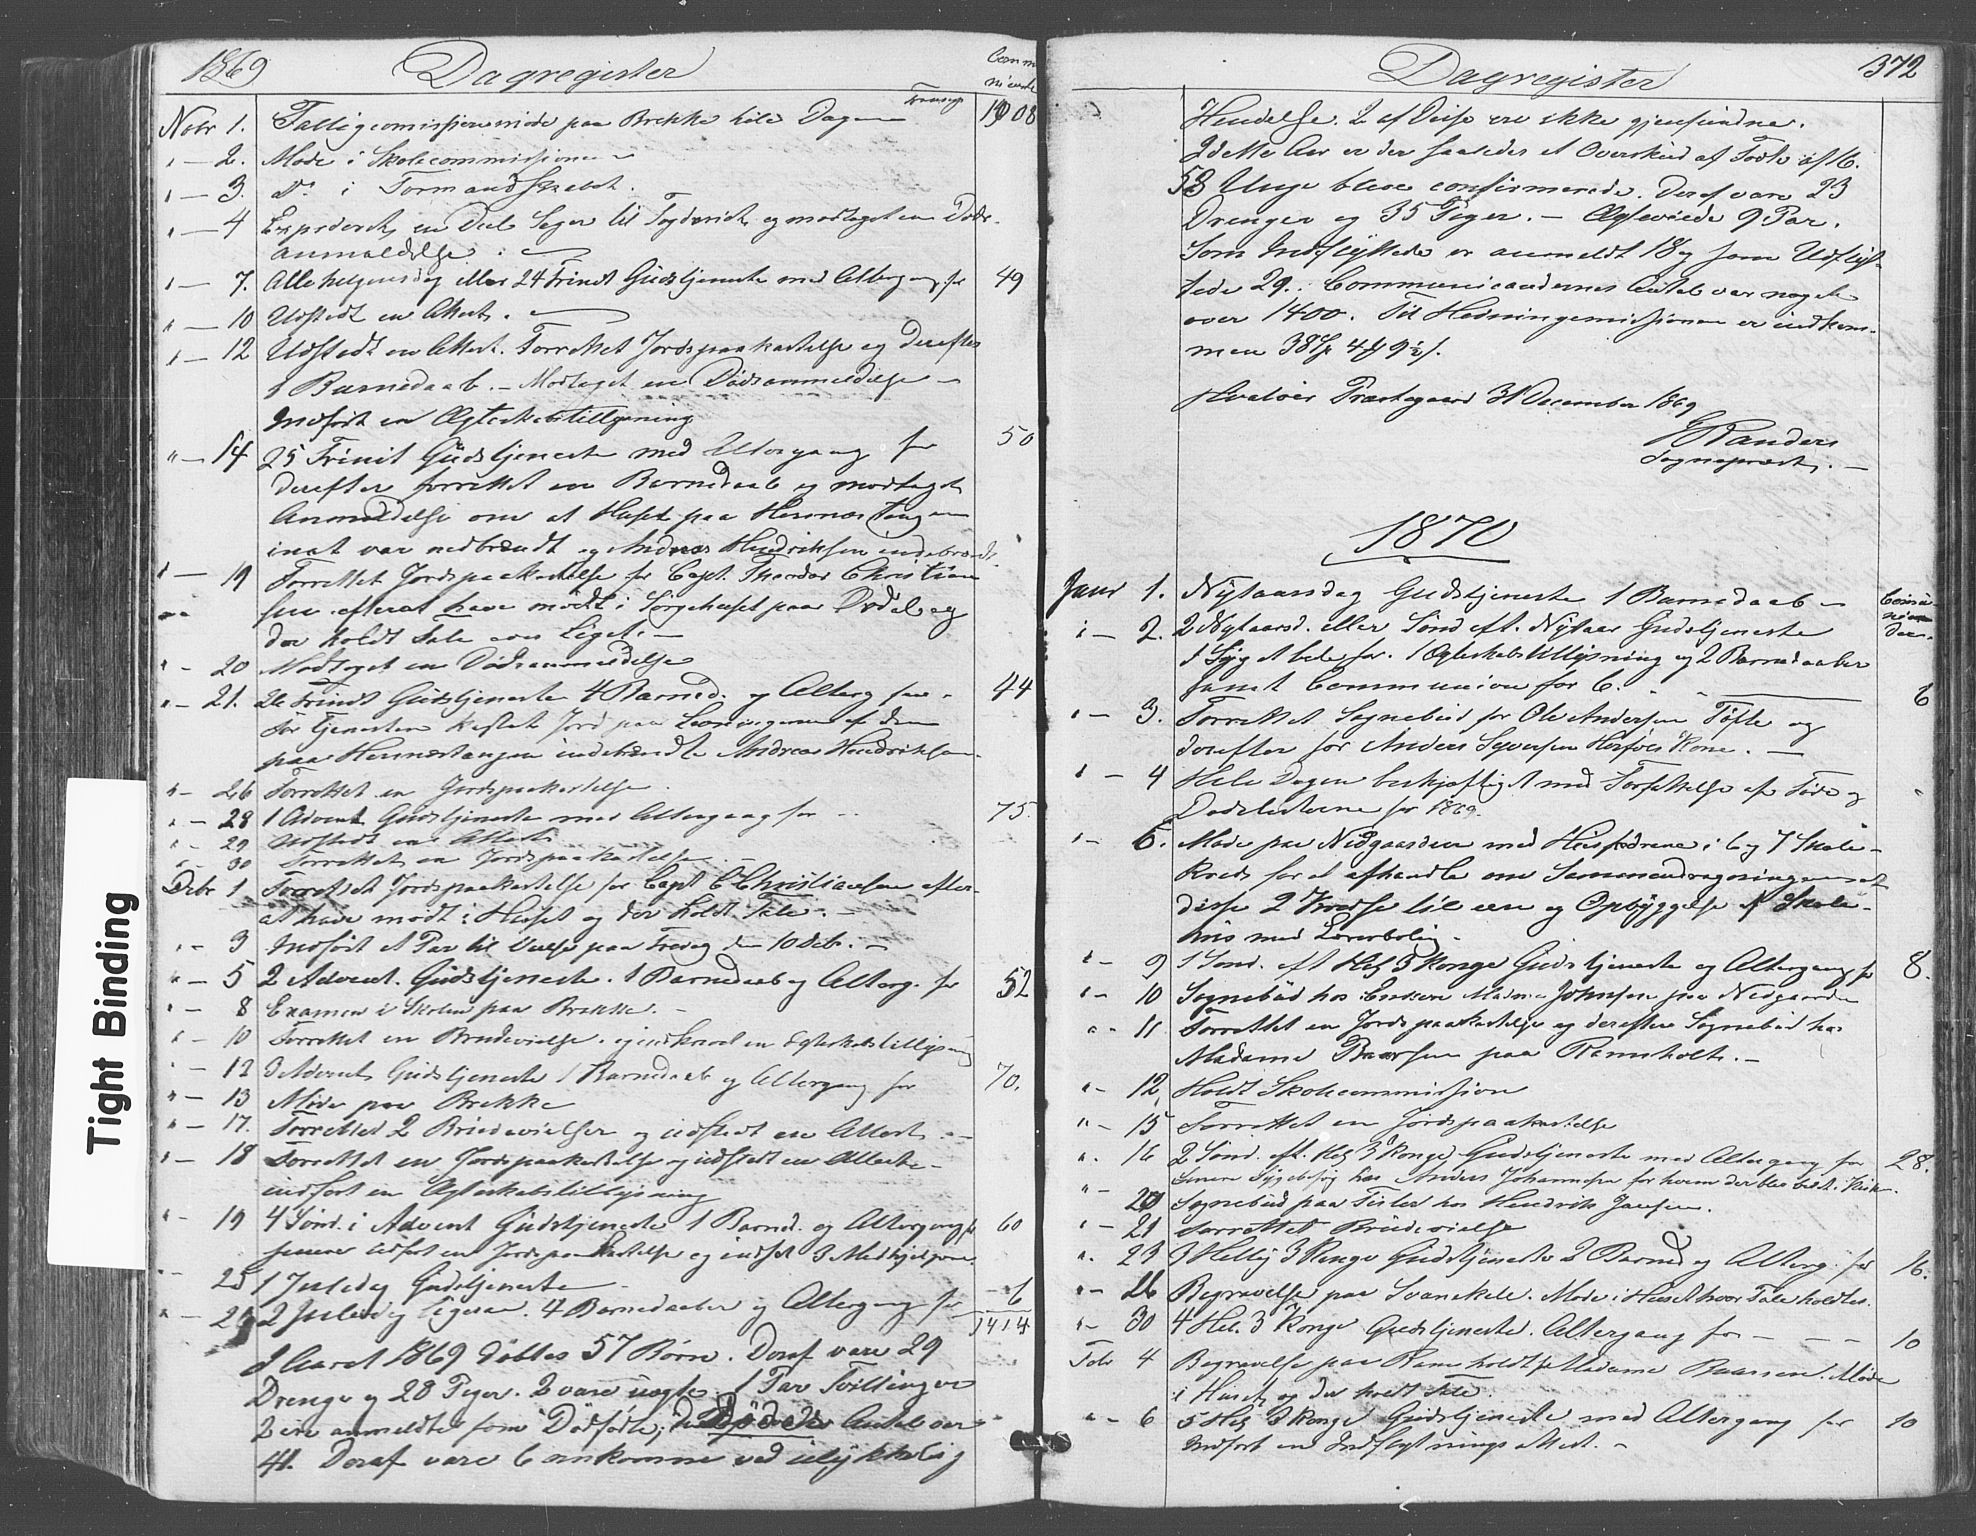 1869 Dagregister Communicerende
Transp. 1008
Novbr 1. Fattigcomissionsmøde paa Brekke hele Dagen
" — 2. Møde i Skolecommissionen
" — 3. Do i Formandskabet.
" — 4 Expederet en Deel Sager til Fogderiet og modtaget en Døds-
anmeldelse.
" — 7. Allehelgensdag eller 24 Trinit Gudstjeneste med Altergang for 49
" — 10 Udstedt en Attest.
" — 12 Udstedt en Attest. Forrettet Jordspaakastelse og derefter
1 Barnedaab. — Modtaget en Dødsanmeldelse —
Indført en Ægteskabstillysning
" — 14 25 Trinit Gudstjeneste med Altergang for 50
derefter forrettet en Barnedaab og modtaget
Anmeldelse om at Huset paa Hernæs Tangen
inat var nedbrændt og Andreas Hendriksen indebrændt.
" — 19 Forrettet Jordspaakastelse for Capt. Theodor Christian
sen efterat have mødt i Sørgehuset paa Dødel og
der holdt Tale over Liget. —
" — 20 Modtaget en Dødsanmeldelse
" — 21. 26 Trinit Gudstjeneste 4 Barned. og Alterg. for 44
Før Tjenesten kastet Jord paa Levningerne af den
paa Hernæstangen indebrændte Andreas Hendriksen.
" — 26 Forrettet en Jordspaakastelse.
" — 28 1 Advent Gudstjeneste med Altergang for 75.
" — 29 Udstedt en Attest
" — 30 Forrettet en Jordspaakastelse
Debr 1 Forrettet Jordspaakastelse for Capt C Christiansen efter-
at have mødt i Huset og der holdt Tale. —
" — 3 Indført et Par til Vielse paa Fredag den 10 Debr. —
" — 5 2 Advent. Gudstjeneste. 1 Barnedaab og Alterg. for 52
" — 8 Examen i Skolen paa Brekke. —
" — 10 Forrettet en Brudevielse. og indskrevet en Ægteskabstillysning
" — 12 3 Advents Gudstjeneste 1 Barnedaab og Altergang for 70.
" — 13 Møde paa Brekke
" — 17. Forrettet 2 Brudevielser og udstedt en Attest —
" — 18 Forrettet en Jordspaakastelse og udstedt en Attest —
indført en Ægteskabstillysning
" — 19 4 Sønd. i Advent Gudstjeneste 1 Barned. og Altergang for 60
senere udført en Jordspaakastelse og indsat 3 Medhjelpere.
" — 25 1 Juledag Gudstjeneste —
" — 26 2 Juledag ligesaa. 4 Barnedaaber og Altergang for 6
1414
I Aaret 1869 døbtes 57 Børn. Deraf vare 29
Drenge og 28 Piger. 2 vare uægte. 1 Par Tvillinger
2 ere anmeldte som Dødfødte; de Dødes Antal var
41. Deraf vare 6 omkomne ved ulykkelig
Dagregister 372
Hendelse. 2 af Disse ere ikke gjenfundne.
I dette Aar er der saaledes et Overskud af Fødte af 16.
58 Unge bleve confirmerede. Deraf vare 23
Drenger og 35 Piger. — Ægteviede 9 Par.
Som Indflyttede er anmeldt 18 og som Udflyt-
tede 29. Communicandernes Antal var noget
over 1400. Til Hedningemissionen er indkom-
men 38 Sp 4 ₰ 9½ s.
Hvaløer Præstegaard 31 December 1869
Randers
Sognepræst. —
1870
Communicanter
Janr 1. Nytaarsdag Gudstjeneste 1 Barnedaab —
" — 2. 2 Nytaarsd. eller Sønd eft. Nytaar Gudstjeneste
1 Syg at bede for. 1 Ægteskabstillysning og 2 Barnedaaber
samt Communion for 6. 6
" — 3. Forrettet Sognebud for Ole Andersen Tofte og
derefter for Anders Syversen Herføls Kone. —
" — 4 Hele Dagen beskjæftiget med Forfattelse af Føde og
Dødslisterne for 1869.
" — 6. Møde paa Nedgaarden med Husfædrene i 6 og 7 Skole-
kreds for at afhandle om Sammendragningen af
disse 2 Kredse til een og Opbyggelse af Skole-
huus med Lærerbolig.
" — 9 1 Sønd. eft Hel 3 Konge Gudstjeneste og Altergang for 8.
" — 10 Sognebud hos Enken Madme Johnsen paa Nedgaarden
" — 11 Forrettet en Jordspaakastelse og derefter Sognebud hos
Madame Baarsen paa Ramsholt. —
" — 12 Holdt Skolecommission
" — 15 Forrettet en Jordspaakastelse
" 16 2 Sønd. eft. Hel 3 Konge Gudstjeneste med Altergang for 28.
Senere Sygebesøg hos Anders Johannesen for hvem der blev bedt i Kirken.
" — 20 Sognebud paa Tisler hos Hendrik Jansen.
" — 21 Forrettet Brudevielse
" 23 3 Hellig 3 Konge Gudstjeneste 2 Barned og Alterg. for 16.
" — 26 Begravelse paa Svanekil. Møde i Huset hvor Tale holdtes.
" — 30 4 Hel. 3 Konge Gudstjeneste. Altergang for — — — 10
Febr 4 Begravelse paa Ramsholdt for Madame Baarsen. Møde
i Huset og der holdt Tale.
" — 6 5 Hel 3 Konge Gudstjeneste med Altergang for 10
Indført en Indflytningsattest. —
Tight Binding